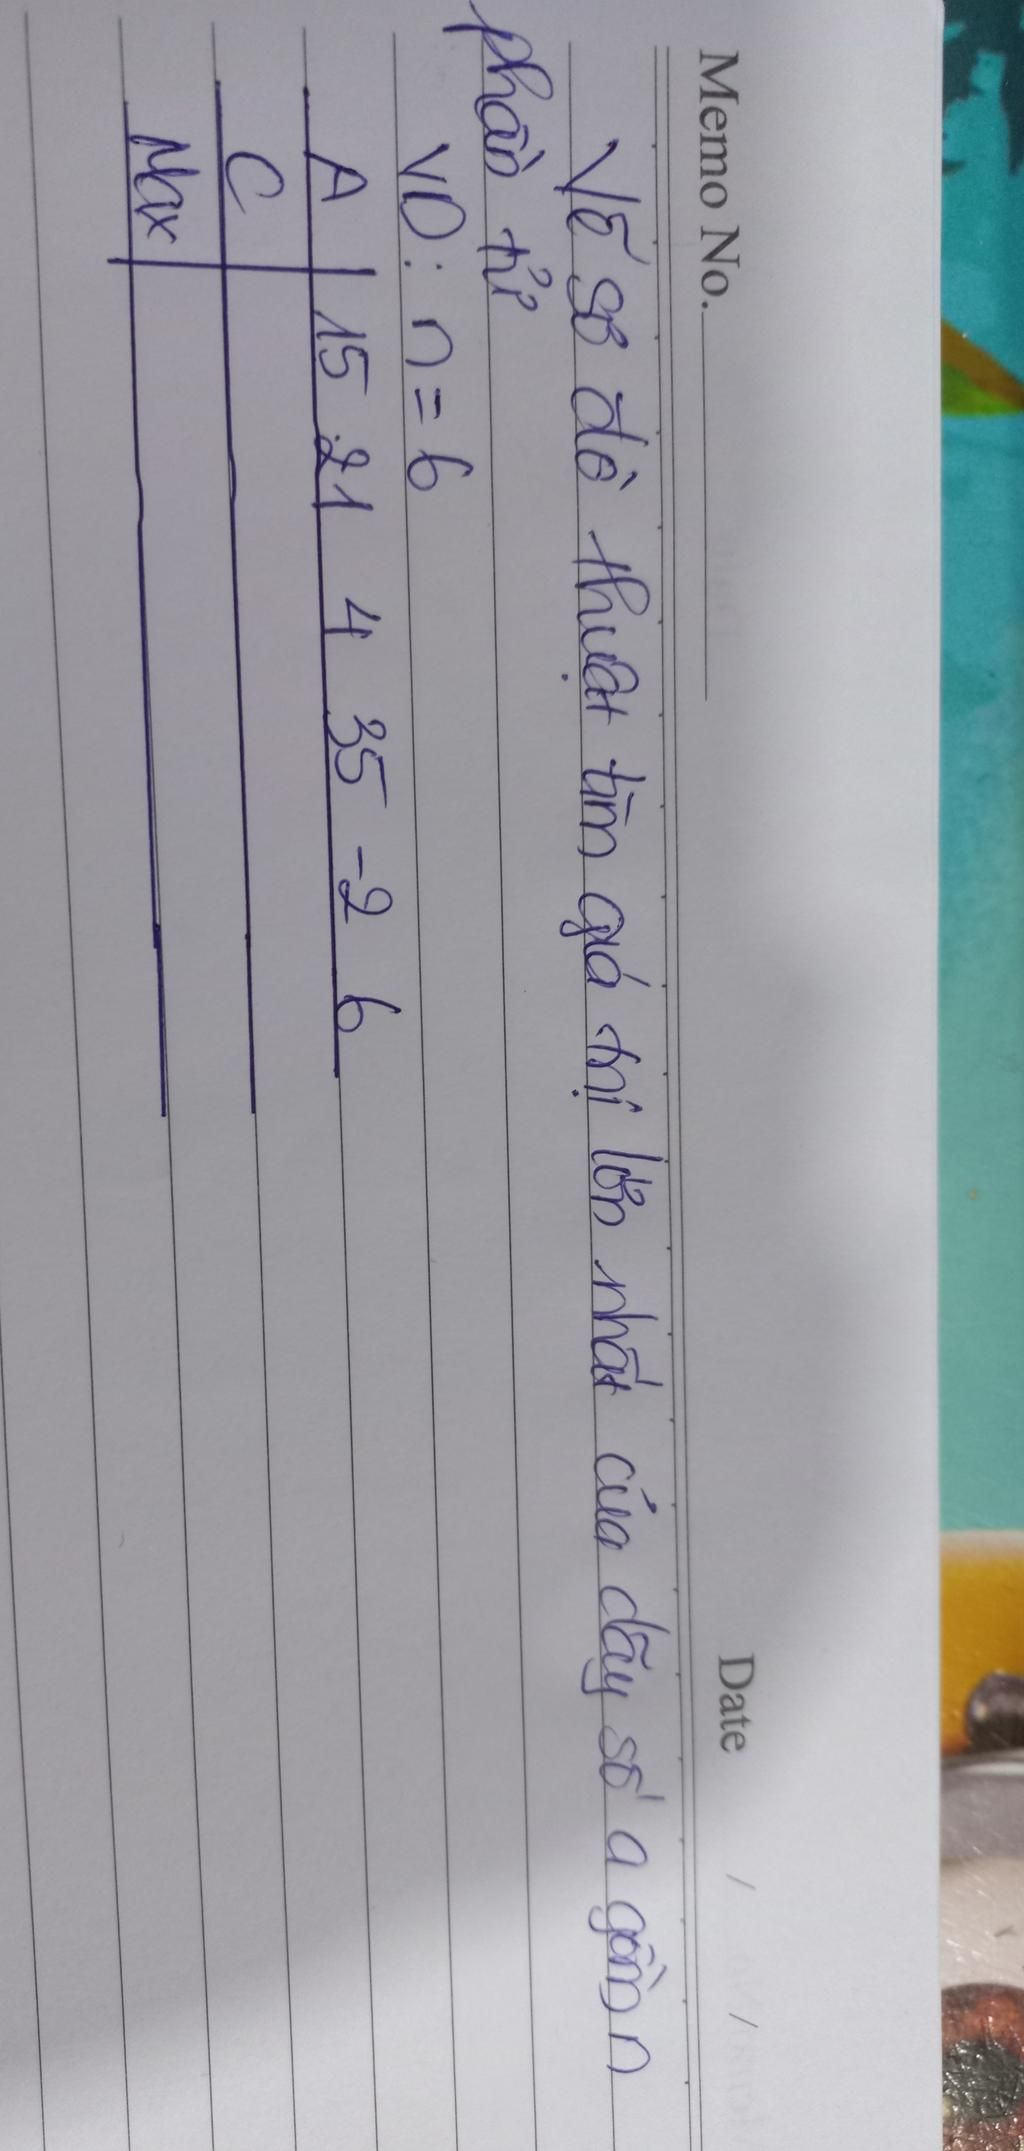 Memo No. Date / /
Vẽ sơ đồ thuật tìm giá trị lớn nhất của dãy số a gồm n
phần tử
VD: n = 6
A 15 21 4 35 -2 6
C
Max